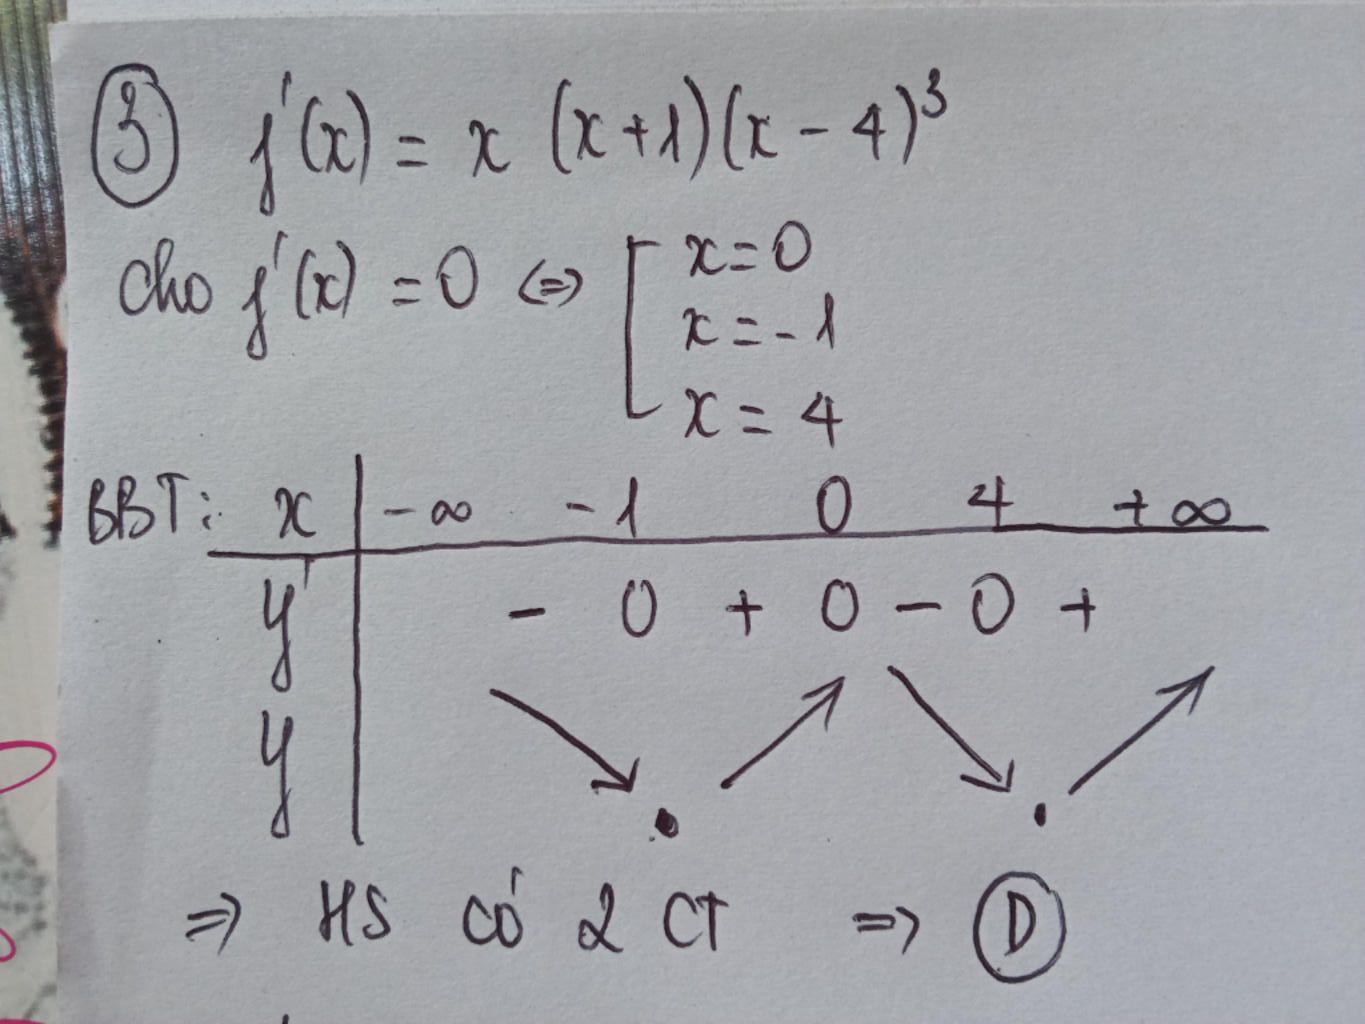 ③ f'(x) = x (x+1)(x-4)³
cho f'(x) = 0 <=> [ x=0
x=-1
x=4
BBT: x | -∞ -1 0 4 +∞
y' | - 0 + 0 - 0 +
y | ↘ . ↗ ↘ . ↗
=> HS có 2 CT => Ⓓ